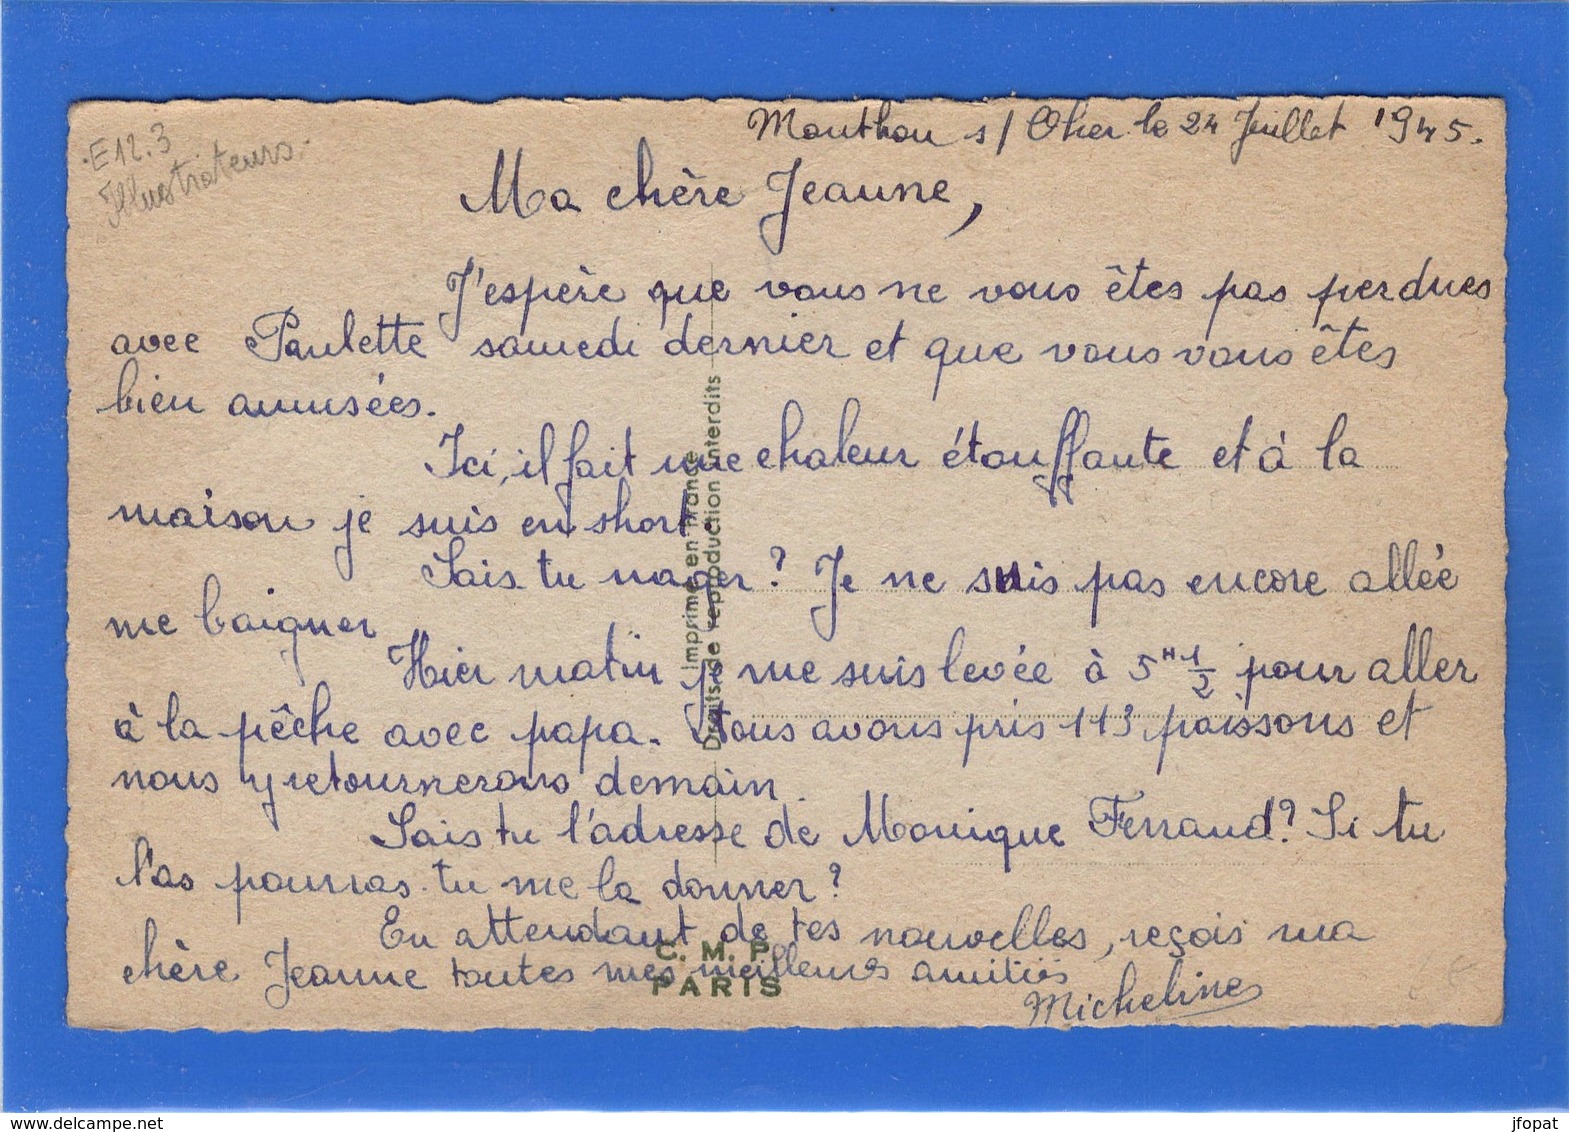 Monthou s/ Cher le 24 Juillet 1945.
·E12.3
Illustrateurs.
Ma chère Jeanne,
J'espère que vous ne vous êtes pas perdues
avec Paulette samedi dernier et que vous vous êtes
bien amusées.
Ici, il fait une chaleur étouffante et à la
maison je suis en short.
Sais tu nager ? Je ne suis pas encore allée
me baigner
Hier matin je me suis levée à 5H 1/2 pour aller
à la pêche avec papa. Nous avons pris 113 poissons et
nous y retournerons demain.
Sais tu l'adresse de Monique Ferraud? Si tu
l'as pourras-tu me la donner?
En attendant de tes nouvelles, reçois ma
chère Jeanne toutes mes meilleures amitiés
Micheline
Imprimé en France
Droits de reproduction interdits
C. M. P.
PARIS
www.delcampe.net
jfopat